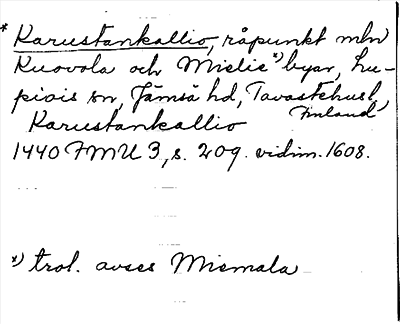 * Karustankallio, råpunkt mln
Kuovola och Mielie *) byar, Lu-
piois sn, Jämsä hd, Tavastehusl,
Finland
Karustankallio
1440 FMU 3, s. 209. vidim. 1608.
*) trol. avses Miemala